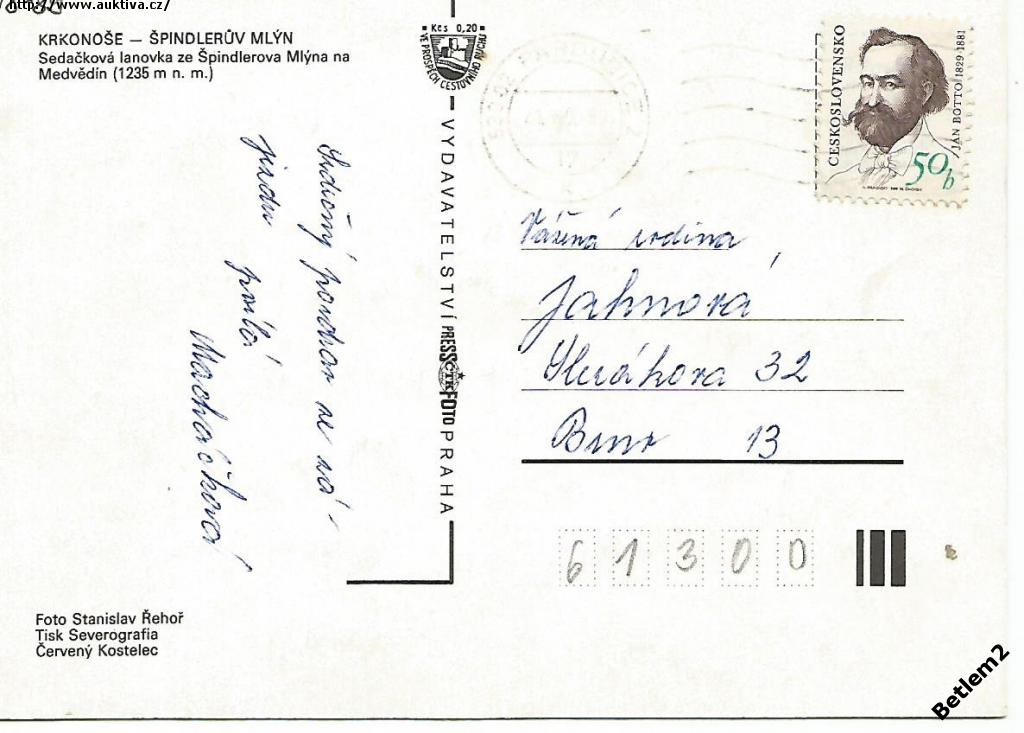 http://www.auktiva.cz/
KRKONOŠE — ŠPINDLERŮV MLÝN
Sedačková lanovka ze Špindlerova Mlýna na
Medvědín (1235 m n. m.)
Kčs 0,20
VE PROSPĚCH CESTOVNÍHO RUCHU
VYDAVATELSTVÍ PRESSFOTO PRAHA
ČTK
ČESKOSLOVENSKO
JÁN BOTTO 1829-1881
50h
Srdečný pozdrav ze zá-
jezdu posílá
Macháčková
Vážená rodina
Jahnová
32
Brno 13
61300
Foto Stanislav Řehoř
Tisk Severografia
Červený Kostelec
Betlem2